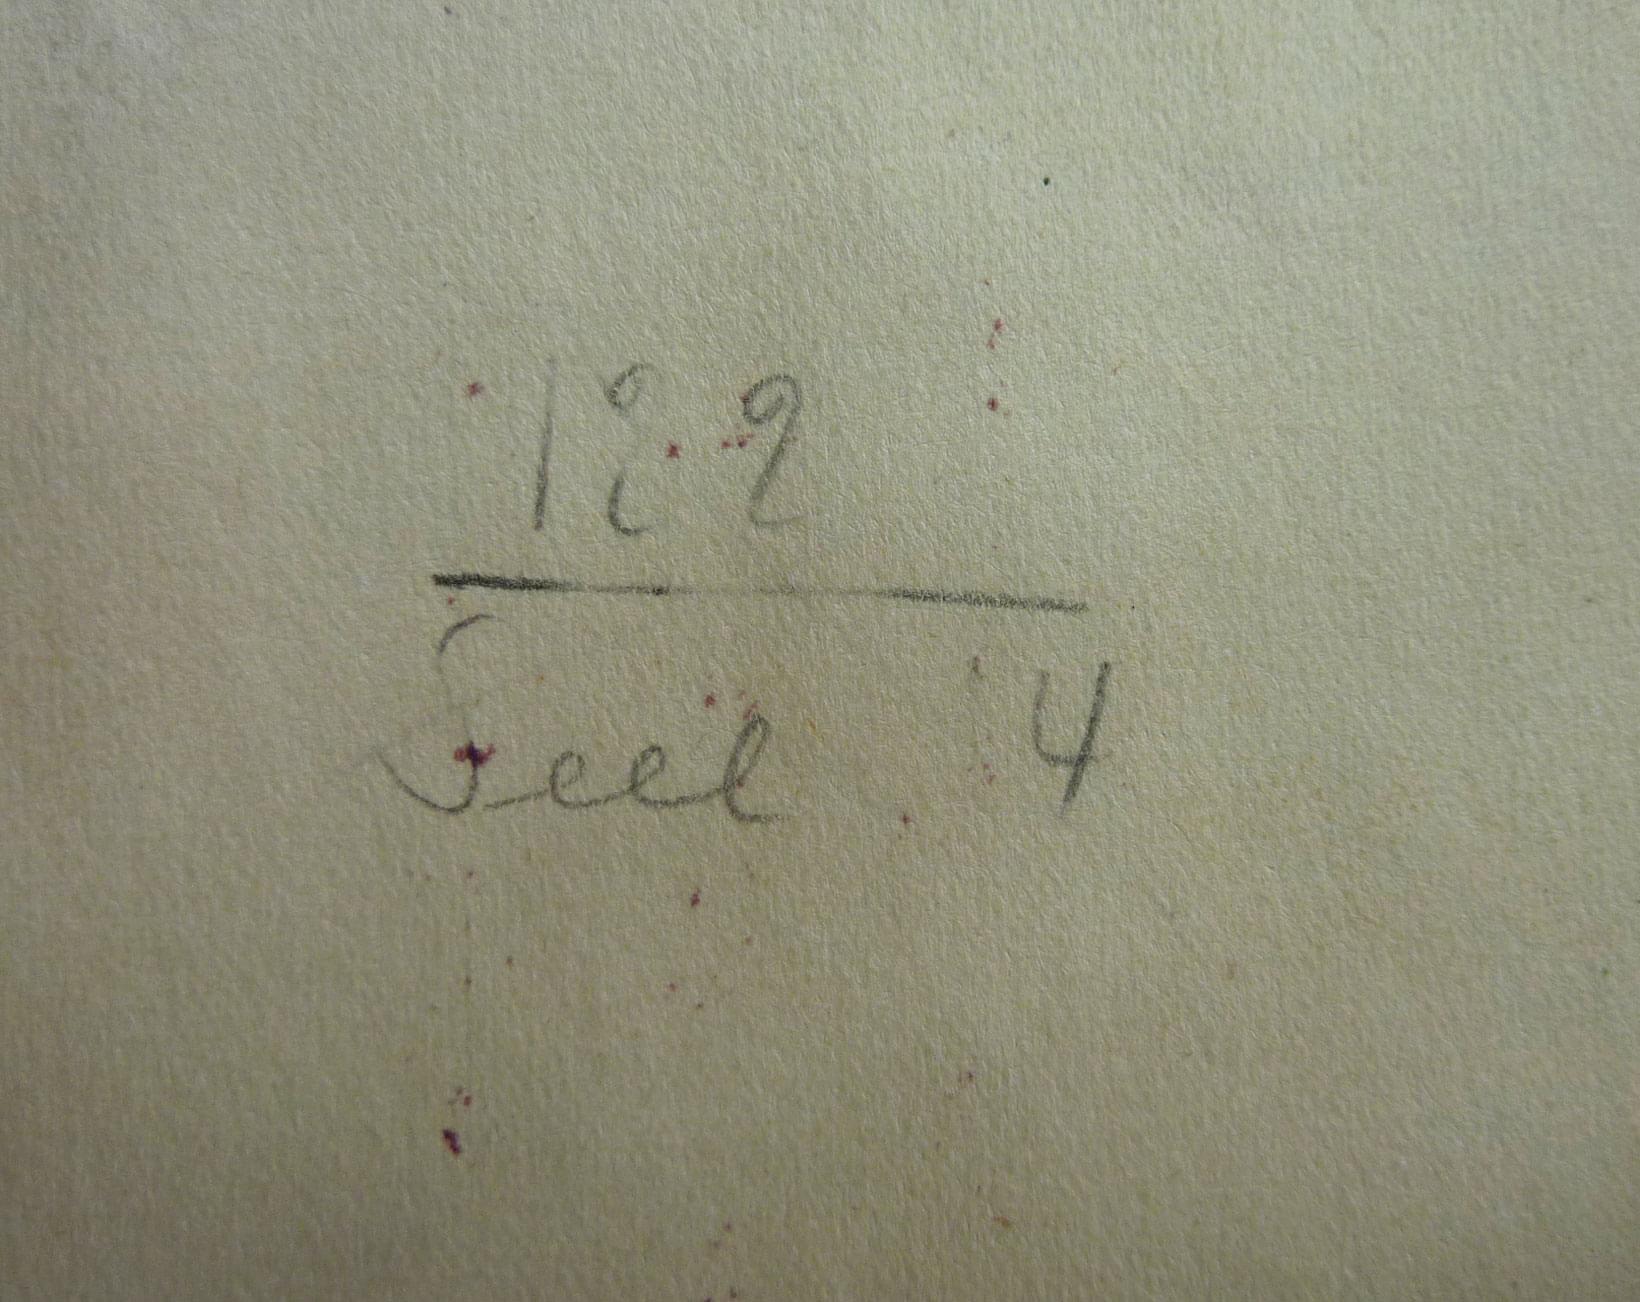 189
Seel 4